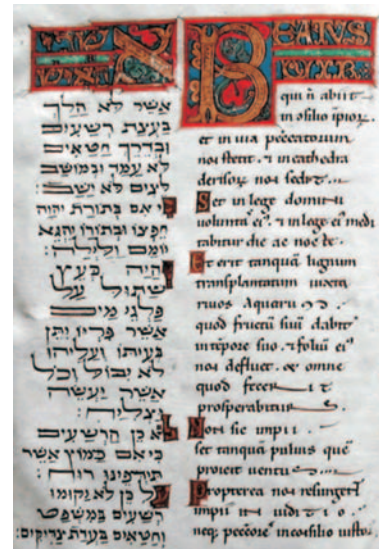 אשרי
האיש
אשר לא הלך
בעצת רשעים
ובדרך חטאים
לא עמד ובמושב
לצים לא ישב:
כי אם בתורת יהוה
חפצו ובתורתו יהגה
יומם ולילה:
והיה כעץ
שתול על
פלגי מים
אשר פריו יתן
בעיתו ועליהו
לא יבול וכל
אשר יעשה
יצליח:
לא כן הרשעים
כי אם כמוץ אשר
תידפינו רוח:
על כן לא יקומו
רשעים במשפט
וחטאים בעדת צדיקים:
BEATUS
UIR
qui n̄ abiit
in ↄsilio īpioꝝ.
et in uia peccatorum
non stetit. ⁊ in cathedra
derisoꝝ non sedit.
Set in lege domini
uoluntas ei᷒. ⁊ in lege ei᷒ medi
tabitur die ac nocte.
Et erit tanquā lignum
transplantatum iuxta
riuos aquarum
quod fructū suū dabit
in tēpore suo. ⁊ foliū ei᷒
non defluet. et omne
quod fecerit
prosperabitur
Non sic impii
set tanquā puluis quē
proicit uentus
Propterea non resurgent
impii in iuditio.
neq; peccōres in cōsilio iustoꝝ